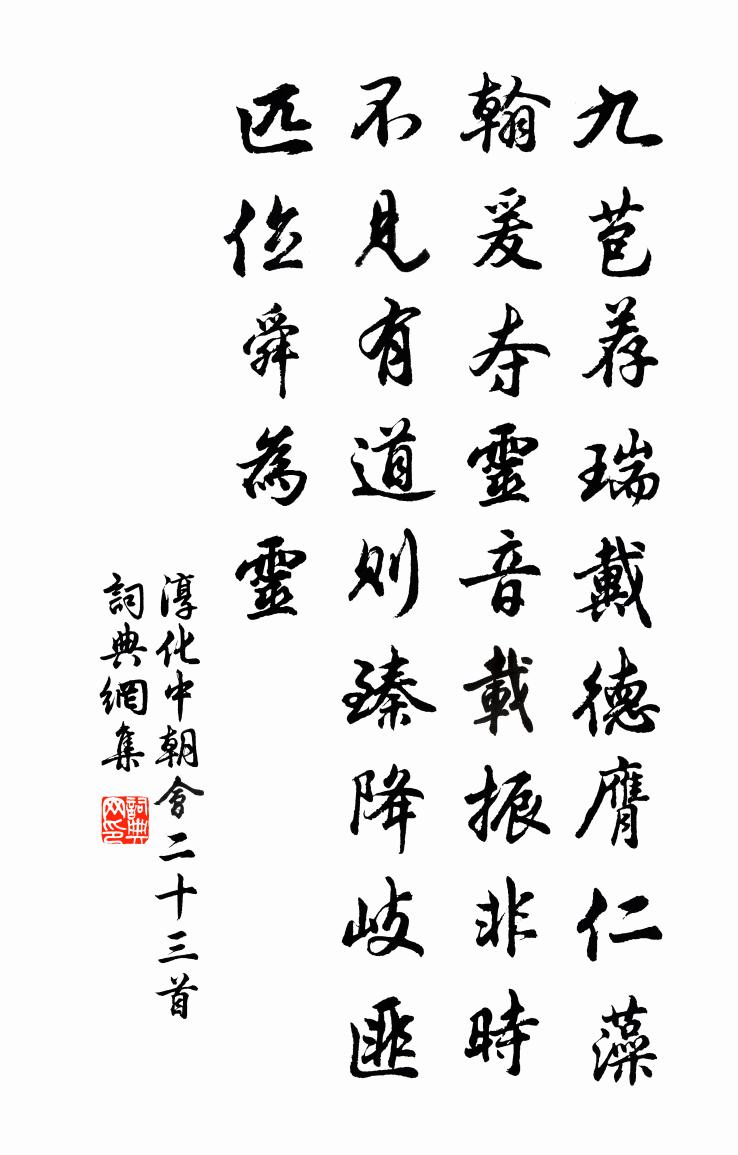 九苞荐瑞戴德膺仁藻
翰爰夺靈音載振非時
不見有道則臻降岐匪
匹俭舜為靈
淳化中朝會二十三首
詞典網集
詞典网印